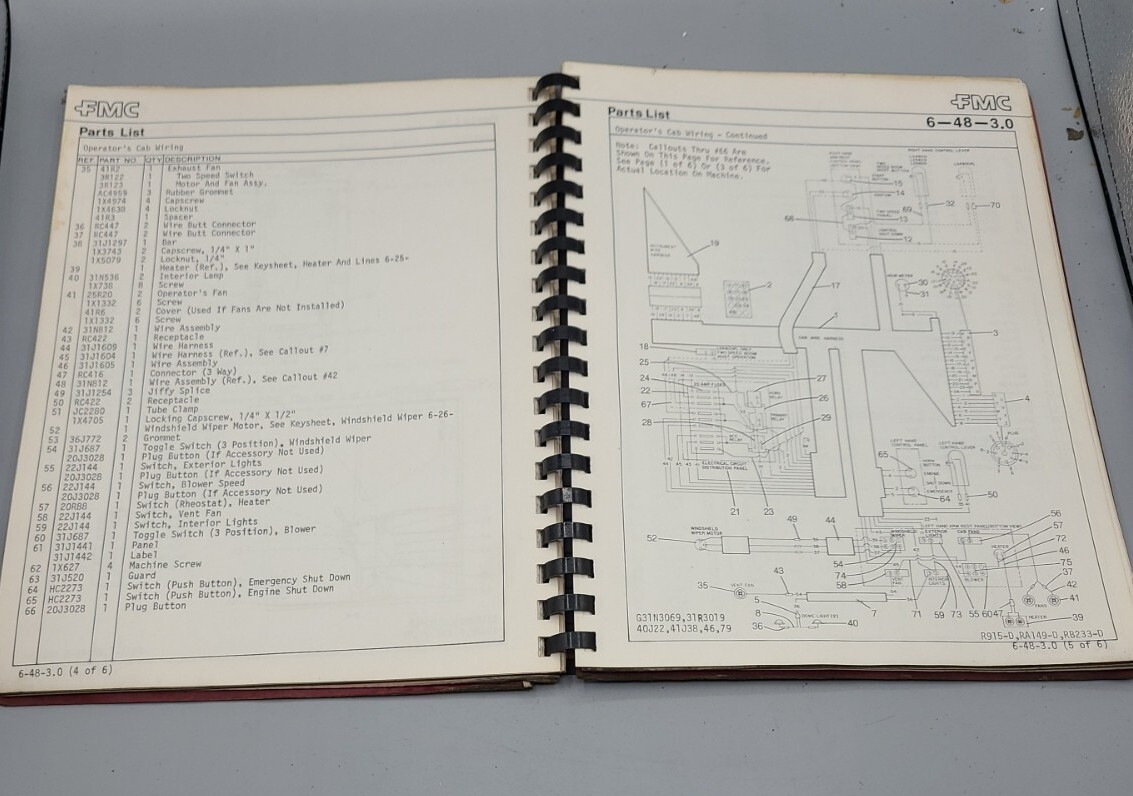 FMC
Parts List
Operator's Cab Wiring
REF PART NO. QTY DESCRIPTION
35 41R2 1 Exhaust Fan
3R122 1 Two Speed Switch
3R123 1 Motor And Fan Assy.
AC4959 3 Rubber Grommet
1X4974 4 Capscrew
1X4630 4 Locknut
41R3 1 Spacer
36 RC447 2 Wire Butt Connector
37 RC447 2 Wire Butt Connector
38 31J1297 1 Bar
1X3743 2 Capscrew, 1/4" X 1"
1X5079 2 Locknut, 1/4"
39 1 Heater (Ref.), See Keysheet, Heater And Lines 6-25-
40 31N536 2 Interior Lamp
1X738 8 Screw
41 25R20 2 Operator's Fan
1X1332 6 Screw
41R6 2 Cover (Used If Fans Are Not Installed)
1X1332 6 Screw
42 31N812 1 Wire Assembly
43 RC422 1 Receptacle
44 31J1609 1 Wire Harness
45 31J1604 1 Wire Harness (Ref.), See Callout #7
46 31J1605 1 Wire Assembly
47 RC416 1 Connector (3 Way)
48 31N812 1 Wire Assembly (Ref.), See Callout #42
49 31J1254 3 Jiffy Splice
50 RC422 2 Receptacle
51 JC2280 1 Tube Clamp
1X4705 1 Locking Capscrew, 1/4" X 1/2"
52 1 Windshield Wiper Motor, See Keysheet, Windshield Wiper 6-26-
53 36J772 2 Grommet
54 31J687 1 Toggle Switch (3 Position), Windshield Wiper
20J3028 1 Plug Button (If Accessory Not Used)
55 22J144 1 Switch, Exterior Lights
20J3028 1 Plug Button (If Accessory Not Used)
56 22J144 1 Switch, Blower Speed
20J3028 1 Plug Button (If Accessory Not Used)
57 20R88 1 Switch (Rheostat), Heater
58 22J144 1 Switch, Vent Fan
59 22J144 1 Switch, Interior Lights
60 31J687 1 Toggle Switch (3 Position), Blower
61 31J1441 1 Panel
31J1442 1 Label
62 1X627 4 Machine Screw
63 31J520 1 Guard
64 HC2273 1 Switch (Push Button), Emergency Shut Down
65 HC2273 1 Switch (Push Button), Engine Shut Down
66 20J3028 1 Plug Button
6-48-3.0 (4 of 6)
FMC
Parts List
6-48-3.0
Operator's Cab Wiring - Continued
Note: Callouts Thru #66 Are
Shown On This Page For Reference.
See Page (1 of 6) Or (3 of 6) For
Actual Location On Machine.
RIGHT HAND CONTROL LEVER
15
14
69
32
70
68
13
12
19
INSTRUMENT
WIRE
HARNESS
2
17
HOUR METER
30
31
1
3
CAB WIRE HARNESS
18
25
24
22
67
28
27
26
29
4
ELECTRICAL CIRCUIT
DISTRIBUTION PANEL
21
23
LEFT HAND
CONTROL PANEL
LEFT HAND
CONTROL LEVER
PLUG
65
HORN
BUTTON
ENGINE
SHUT DOWN
EMERGENCY
64
50
WINDSHIELD
WIPER MOTOR
52
49
44
WINDSHIELD
WIPER
EXTERIOR
LIGHTS
CAB FANS
56
57
72
46
75
54
74
58
HEATER
BLOWER
VENT
FAN
INTERIOR
LIGHTS
37
42
41
35
VENT FAN
43
5
8
36
DOME LIGHTS
40
7
71
59
73
55
60
47
FANS
HEATER
39
G31N3069,31R3019
40J22,41J38,46,79
R915-D,RA149-D,RB233-D
6-48-3.0 (5 of 6)